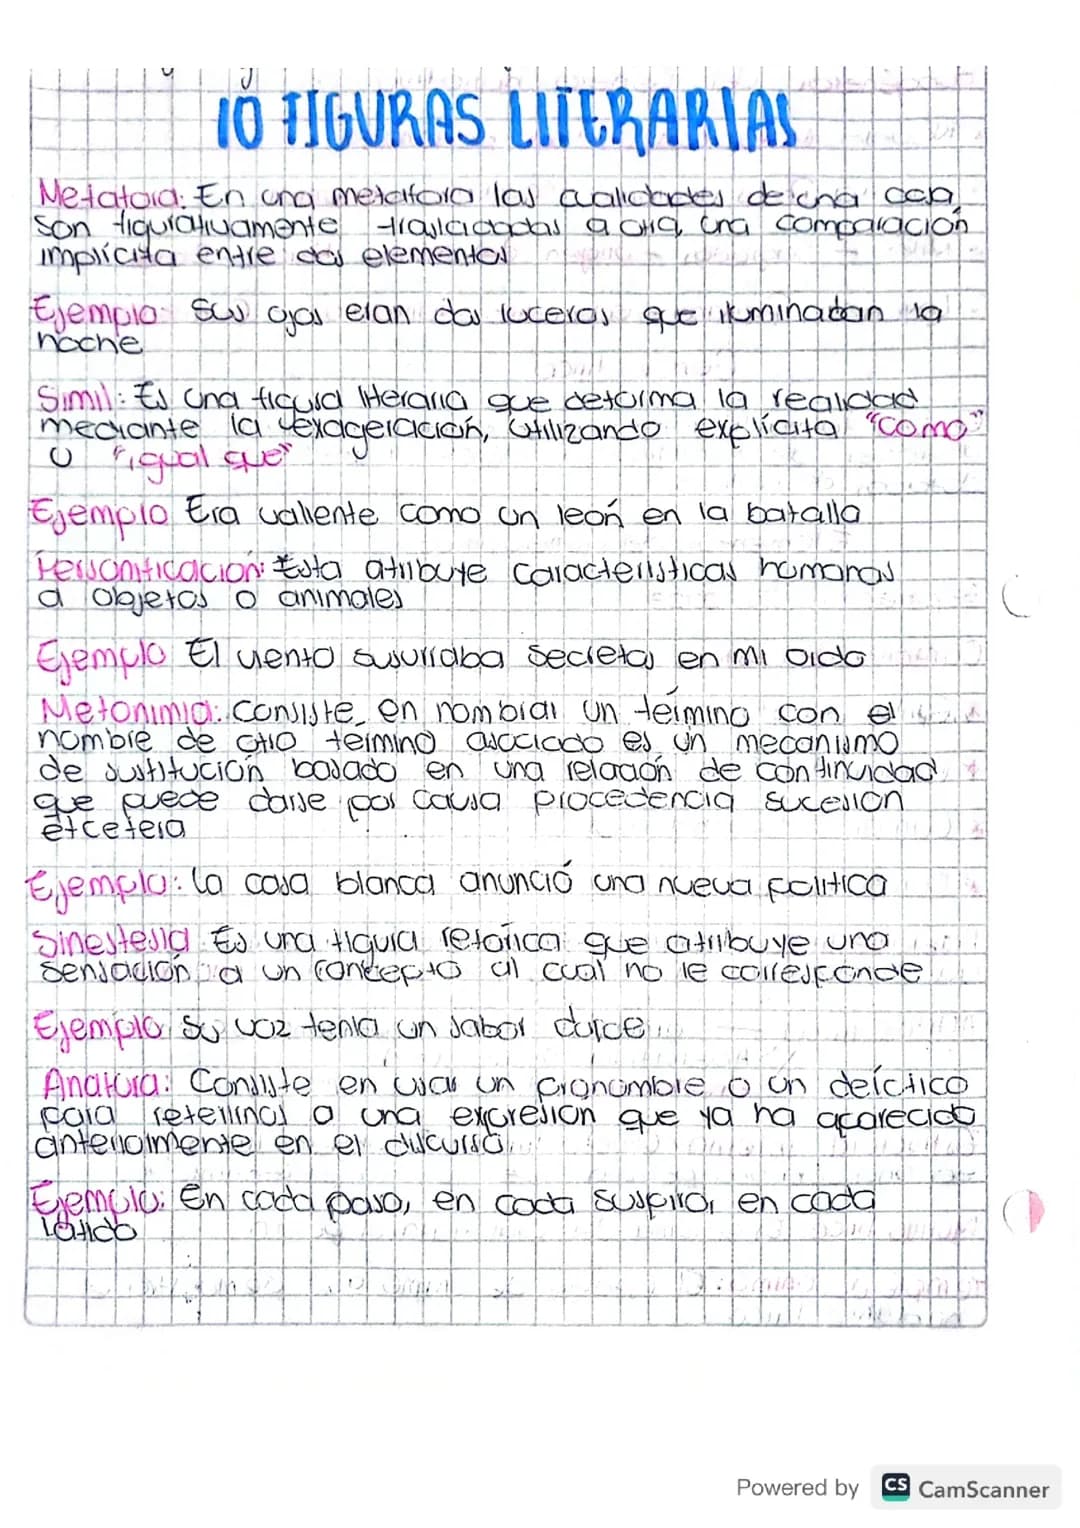 10 FIGURAS LITERARIAS
Metafora: En una metafora las cualidades de una cosa
son figurativamente trasladadas a otra, una comparación
implícita entre dos elementos
Ejemplo: Sus ojos eran dos luceros que iluminaban la
noche
Simil: Es una figura literaria que deforma la realidad
mediante la exageración, utilizando explícita "como"
u "igual que"
Ejemplo Era valiente como un león en la batalla
Personificacion: Esta atribuye caracteristicas humanas
a objetos o animales
Ejemplo El viento susurraba secretos en mi oido
Metonimia: Consiste en nombrar un término con el
nombre de otro termino asociado es un mecanismo
de sustitución basado en una relación de continuidad
que puede darse por causa procedencia sucesion
etcetera
Ejemplo: la casa blanca anunció una nueva politica
Sinestesia Es una figura retórica que atribuye una
sensación a un concepto al cual no le corresponde
Ejemplo Su voz tenia un sabor dulce
Anafora: Consiste en usar un pronombre o un deíctico
para referirnos a una expresion que ya ha aparecido
anteriormente en el discurso
Ejemplo: En cada paso, en cada suspiro, en cada
latido
Powered by CS CamScanner